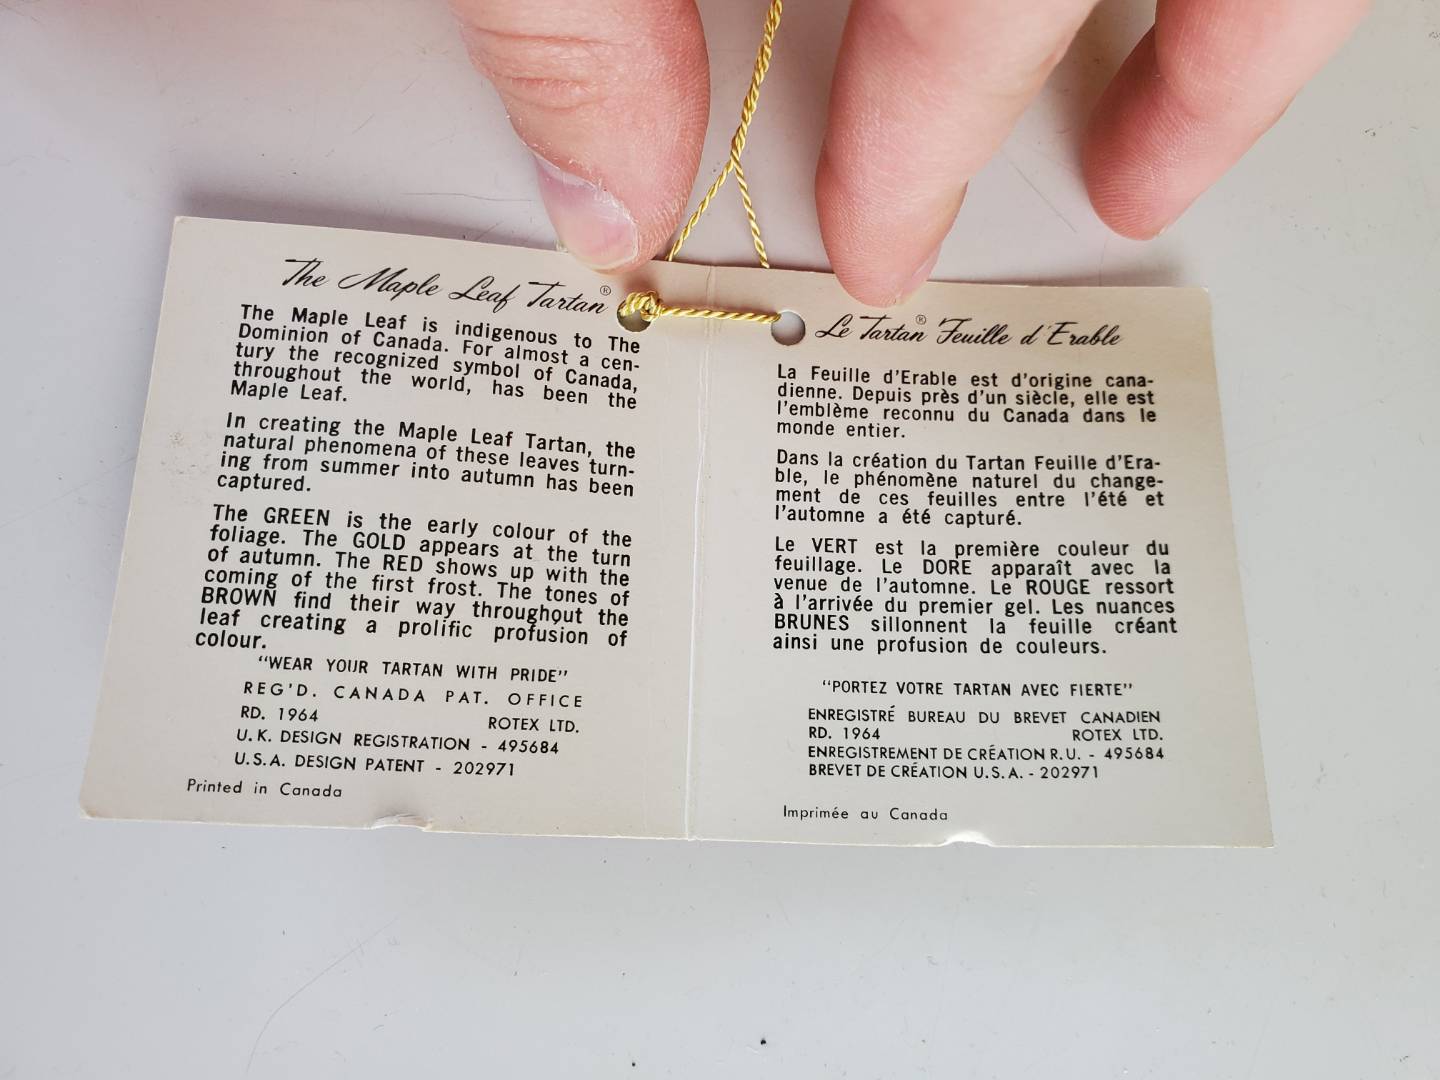 The Maple Leaf Tartan®
The Maple Leaf is indigenous to The
Dominion of Canada. For almost a cen-
tury the recognized symbol of Canada,
throughout the world, has been the
Maple Leaf.
In creating the Maple Leaf Tartan, the
natural phenomena of these leaves turn-
ing from summer into autumn has been
captured.
The GREEN is the early colour of the
foliage. The GOLD appears at the turn
of autumn. The RED shows up with the
coming of the first frost. The tones of
BROWN find their way throughout the
leaf creating a prolific profusion of
colour.
"WEAR YOUR TARTAN WITH PRIDE"
REG'D. CANADA PAT. OFFICE
RD. 1964 ROTEX LTD.
U.K. DESIGN REGISTRATION - 495684
U.S.A. DESIGN PATENT - 202971
Printed in Canada
Le Tartan® Feuille d'Erable
La Feuille d'Erable est d'origine cana-
dienne. Depuis près d'un siècle, elle est
l'emblème reconnu du Canada dans le
monde entier.
Dans la création du Tartan Feuille d'Era-
ble, le phénomène naturel du change-
ment de ces feuilles entre l'été et
l'automne a été capturé.
Le VERT est la première couleur du
feuillage. Le DORE apparaît avec la
venue de l'automne. Le ROUGE ressort
à l'arrivée du premier gel. Les nuances
BRUNES sillonnent la feuille créant
ainsi une profusion de couleurs.
"PORTEZ VOTRE TARTAN AVEC FIERTE"
ENREGISTRÉ BUREAU DU BREVET CANADIEN
RD. 1964 ROTEX LTD.
ENREGISTREMENT DE CRÉATION R.U. - 495684
BREVET DE CRÉATION U.S.A. - 202971
Imprimée au Canada